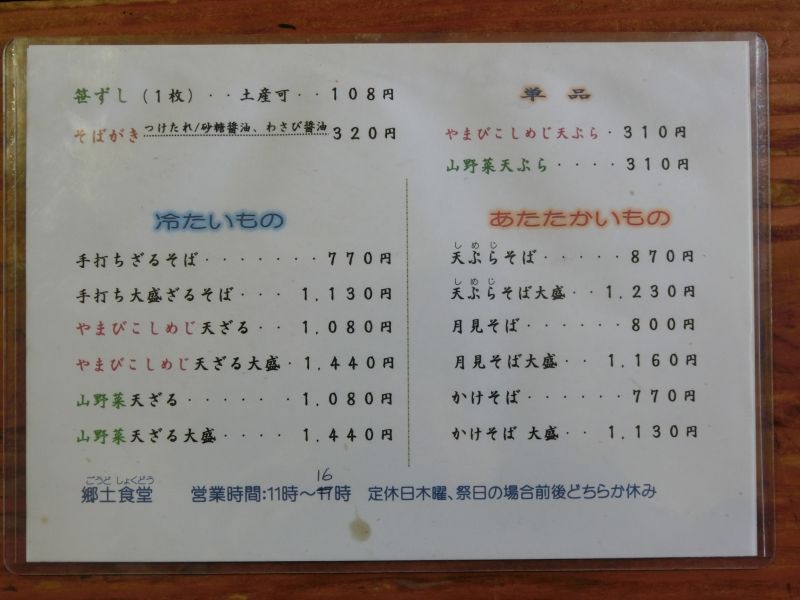 笹ずし（1枚）・・土産可・・108円
そばがき つけたれ/砂糖醬油、わさび醬油 320円
単品
やまびこしめじ天ぷら・310円
山野菜天ぷら・・・・310円
冷たいもの
手打ちざるそば・・・・・・・770円
手打ち大盛ざるそば・・・1,130円
やまびこしめじ天ざる・・1,080円
やまびこしめじ天ざる大盛・1,440円
山野菜天ざる・・・・・・1,080円
山野菜天ざる大盛・・・・1,440円
あたたかいもの
しめじ
天ぷらそば・・・・・870円
しめじ
天ぷらそば大盛・・1,230円
月見そば・・・・・・800円
月見そば大盛・・1,160円
かけそば・・・・・・770円
かけそば 大盛・・1,130円
ごうど しょくどう
16
郷土食堂 営業時間：11時～17時 定休日木曜、祭日の場合前後どちらか休み